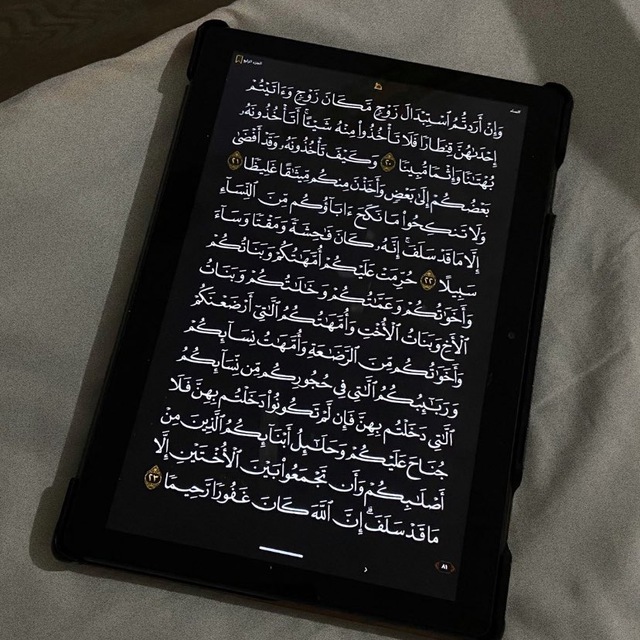 الجزء الرابع
النساء
وَإِنْ أَرَدتُّمُ ٱسْتِبْدَالَ زَوْجٍ مَّكَانَ زَوْجٍ وَءَاتَيْتُمْ
إِحْدَىٰهُنَّ قِنطَارًا فَلَا تَأْخُذُوا۟ مِنْهُ شَيْـًٔا أَتَأْخُذُونَهُۥ
بُهْتَـٰنًا وَإِثْمًا مُّبِينًا ٢٠ وَكَيْفَ تَأْخُذُونَهُۥ وَقَدْ أَفْضَىٰ
بَعْضُكُمْ إِلَىٰ بَعْضٍ وَأَخَذْنَ مِنكُم مِّيثَـٰقًا غَلِيظًا ٢١
وَلَا تَنكِحُوا۟ مَا نَكَحَ ءَابَآؤُكُم مِّنَ ٱلنِّسَآءِ
إِلَّا مَا قَدْ سَلَفَ ۚ إِنَّهُۥ كَانَ فَـٰحِشَةً وَمَقْتًا وَسَآءَ
سَبِيلًا ٢٢ حُرِّمَتْ عَلَيْكُمْ أُمَّهَـٰتُكُمْ وَبَنَاتُكُمْ
وَأَخَوَٰتُكُمْ وَعَمَّـٰتُكُمْ وَخَـٰلَـٰتُكُمْ وَبَنَاتُ
ٱلْأَخِ وَبَنَاتُ ٱلْأُخْتِ وَأُمَّهَـٰتُكُمُ ٱلَّـٰتِىٓ أَرْضَعْنَكُمْ
وَأَخَوَٰتُكُم مِّنَ ٱلرَّضَـٰعَةِ وَأُمَّهَـٰتُ نِسَآئِكُمْ
وَرَبَـٰٓئِبُكُمُ ٱلَّـٰتِى فِى حُجُورِكُم مِّن نِّسَآئِكُمُ
ٱلَّـٰتِى دَخَلْتُم بِهِنَّ فَإِن لَّمْ تَكُونُوا۟ دَخَلْتُم بِهِنَّ فَلَا
جُنَاحَ عَلَيْكُمْ وَحَلَـٰٓئِلُ أَبْنَآئِكُمُ ٱلَّذِينَ مِنْ
أَصْلَـٰبِكُمْ وَأَن تَجْمَعُوا۟ بَيْنَ ٱلْأُخْتَيْنِ إِلَّا
مَا قَدْ سَلَفَ ۗ إِنَّ ٱللَّهَ كَانَ غَفُورًا رَّحِيمًا ٢٣
٨١